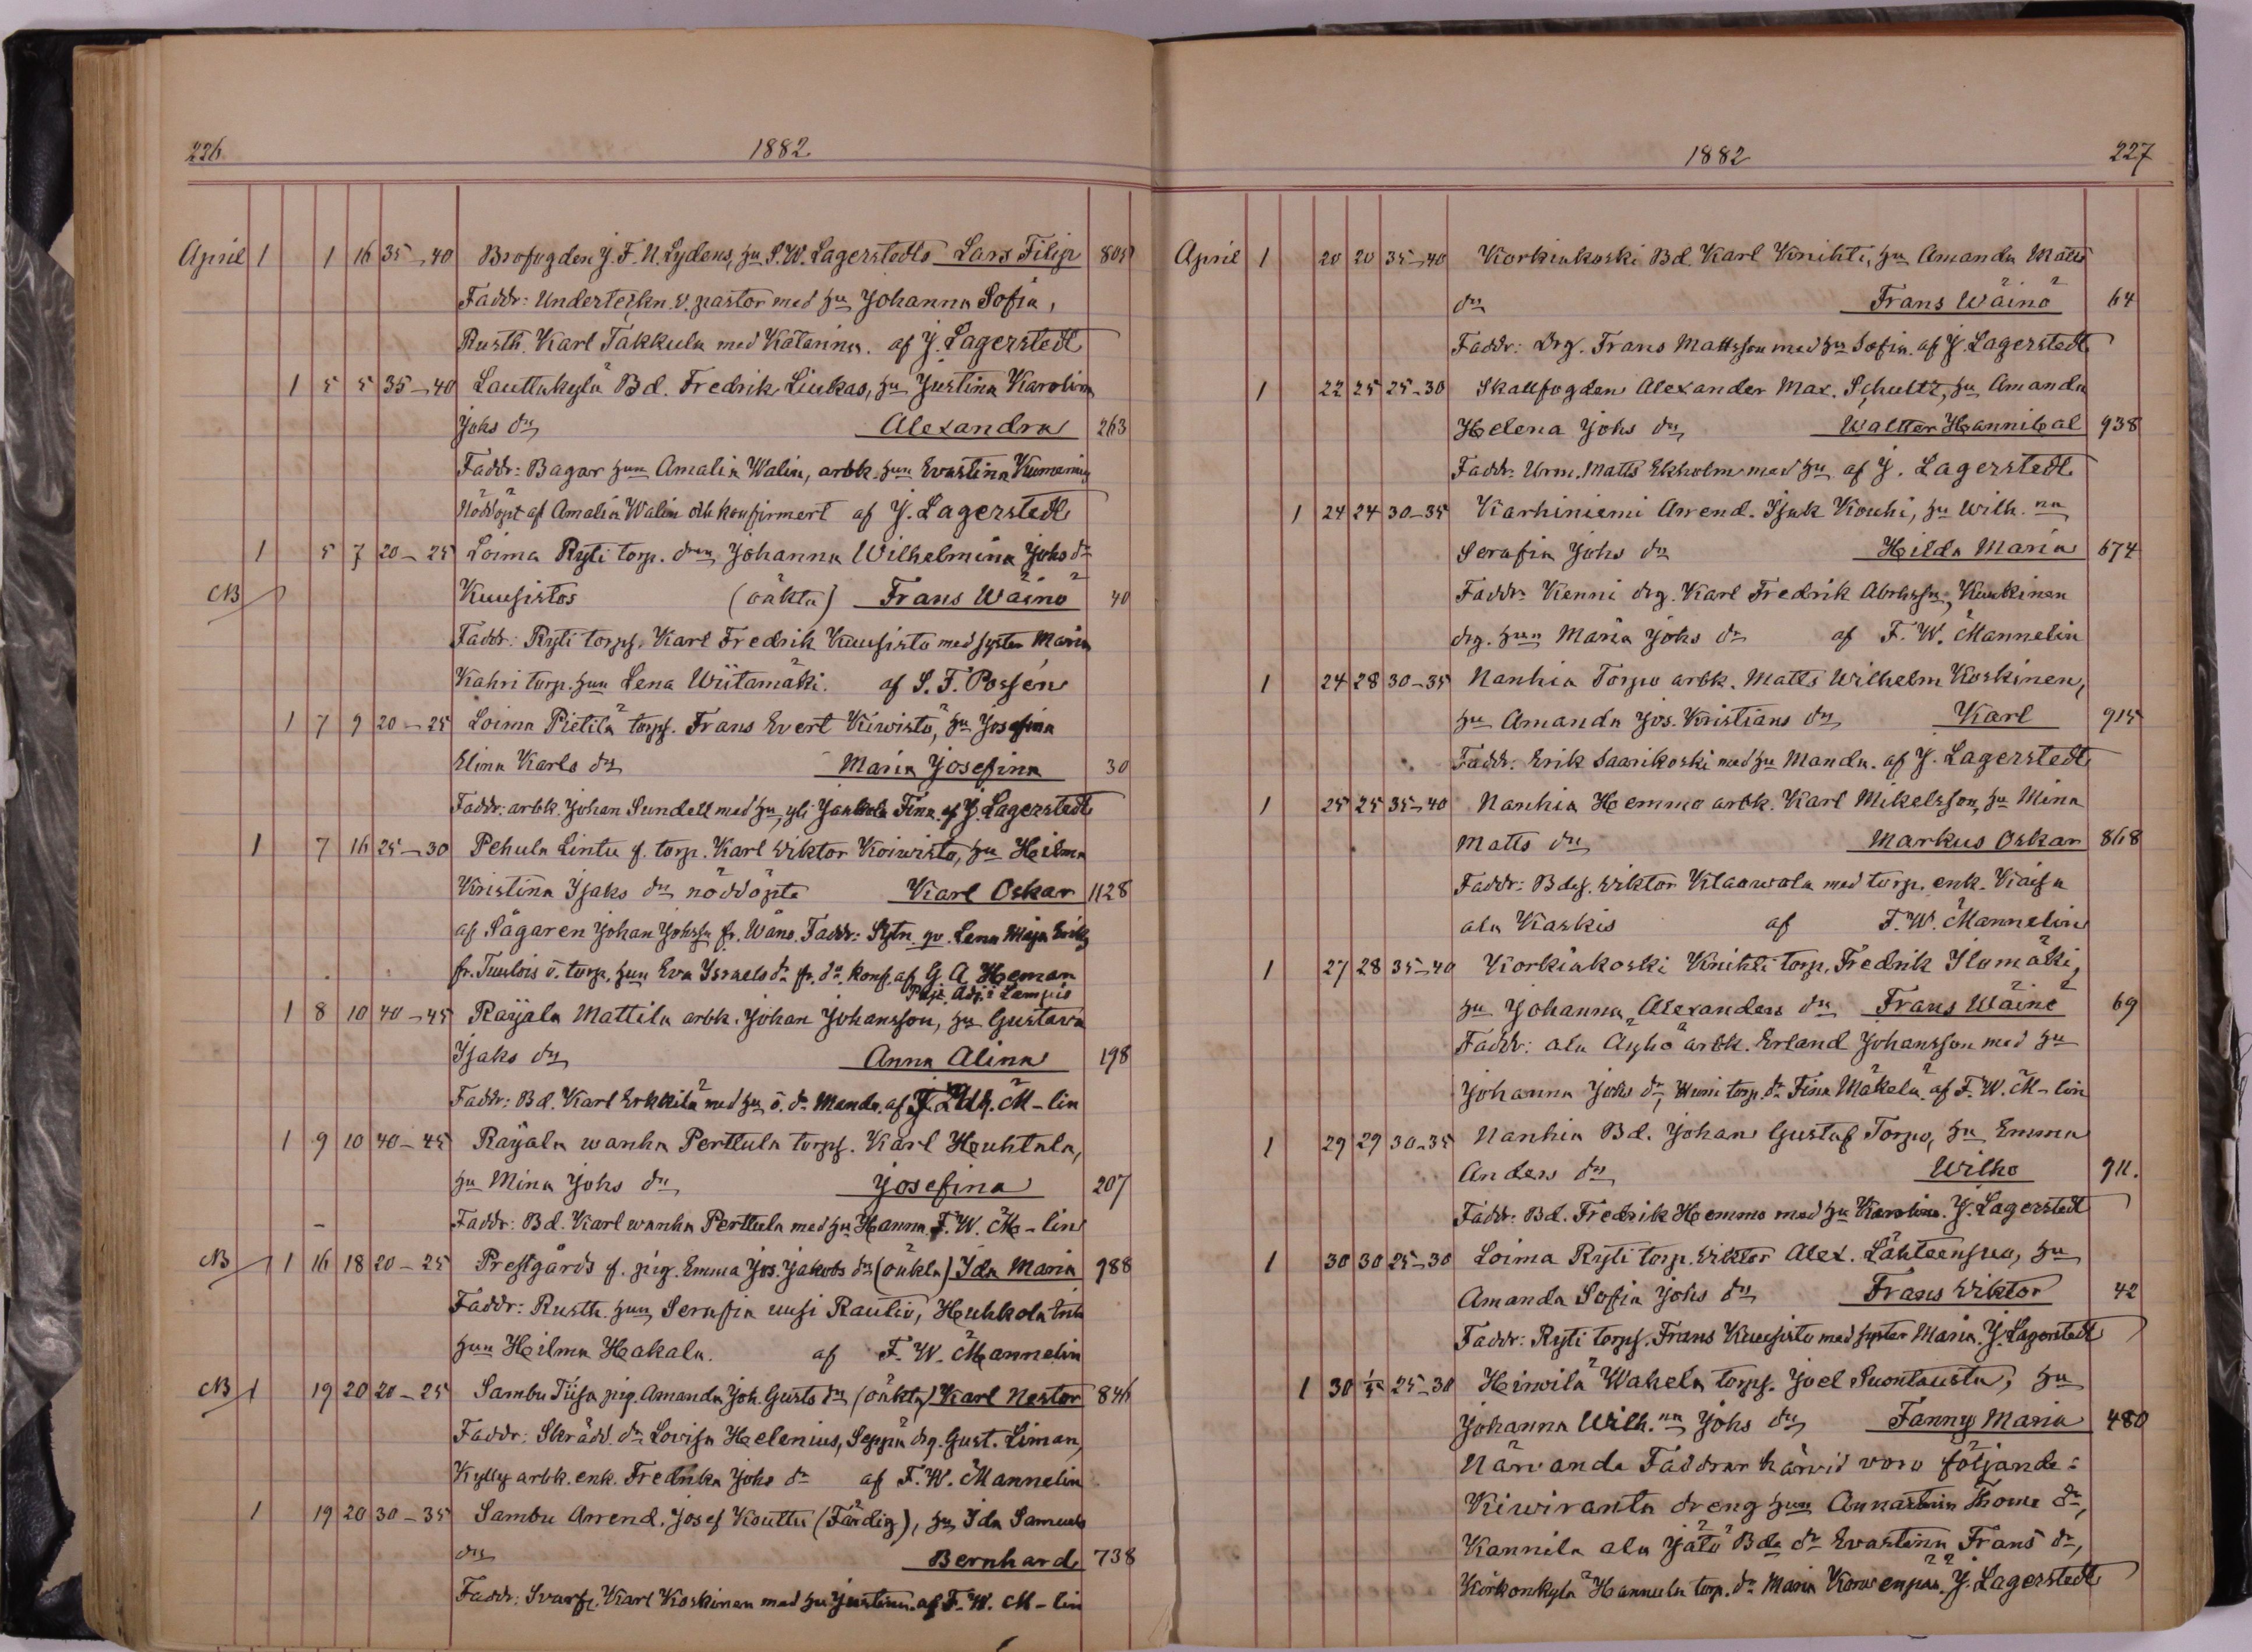 226 1882
April 1 1 16 35-40 Brofogden J. F. N. Lydens, hu S. W. Lagerstedts Lars Filip 805
Faddr: Underteckn. v. pastor med hu Johanna Sofia,
Rusth. Karl Takkula med Katarina. af J. Lagerstedt
1 5 5 35-40 Lauttakylä Bd. Fredrik Liukas, hu Justina Karolina
Johs dr Alexandra 263
Faddr: Bagar hun Amalia Walin, arbk. hun Evastina
Nöddöpt af Amalia Walin och konfirmert af J. Lagerstedt
1 5 7 20-25 Loima Ryti torp. dren Johanna Wilhelmina Johs dr
NB Kuusistos (oäkta) Frans Wäinö 40
Faddr: Ryti torps. Karl Fredrik Kuusisto med syster Maria
Kahri torp. hun Lena Wiitamäki. af S. F. Possén
1 7 9 20-25 Loima Pietilä torps. Frans Evert Kiwistö, hu Josefina
Elina Karls dr Maria Josefina 30
Faddr: arbk. Johan Sundell med hu, yli Fina. af J. Lagerstedt
1 7 16 25-30 Pehula Lintu f. torp. Karl Wiktor Koiwisto, hu Hilma
Kristina Isaks dr nöddöpte Karl Oskar 1128
af Sågaren Johan Johssn fr. Wånå. Faddr: Sytn. gv. Lena Maja Eriks
fr. Tuulois o. torp. hun Eva Israels dr fr. do konf. af G. A. Heman
Past. Adj. i Lampis
1 8 10 40-45 Raijala Mattila arbk. Johan Johansson, hu Gustava
Isaks dr Anna Alina 198
Faddr: Bd. Karl Erkkilä med hu o. dr Manda. af M-lin
1 9 10 40-45 Raijala wanha Perttula torps. Karl Houhtala,
hu Mina Johs dr Josefina 207
Faddr: Bd. Karl wanha Perttula med hu Hanna. F. W. M-lin
NB 1 16 18 20-25 Prestgårds f. pig. Emma Jos. Jakobs dr (oäkta) Ida Maria 988
Faddr: Rusth. hun Serafia uusi Rautio, Huhkola
hun Hilma Hakala. af F. W. Mannelin
NB 1 19 20 20-25 Sambu Tiisa pig. Amanda Joh. Gusts dr (oäkta) Karl Nestor 846
Faddr: Skrädd. dr Lovisa Helenius, Seppä drg. Gust. Liman,
Kylly arbk. enk. Fredrika Johs dr af F. W. Mannelin
1 19 20 30-35 Sambu Arrend. Josef Kouttu (Färdig), hu Ida Samuels
dr Bernhard 738
Faddr: Svarf. Karl Koskinen med hu Justina. af F. W. M-lin
1882 227
April 1 20 20 35-40 Korkiakoski Bd. Karl Knihti, hu Amanda Matts
dr Frans Wäinö 64
Faddr: Drg. Frans Mattsson med hu Sofia. af J. Lagerstedt
1 22 25 25-30 Skallfogden Alexander Max. Schultz, hu Amanda
Helena Johs dr Waltter Hannibal 938
Faddr: Urm. Matts Ekholm med hu af J. Lagerstedt
1 24 24 30-35 Karhiniemi Arrend. Isak Kouhi, hu Wilh. na
Serafia Johs dr Hilda Maria 674
Faddr: Kenni drg. Karl Fredrik Abrhssn, Kuukinen
drg. hun Maria Johs dr af F. W. Mannelin
1 24 28 30-35 Nanhia Torpo arbk. Matts Wilhelm Koskinen,
hu Amanda Jos. Kristians dr Karl 915
Faddr: Erik Saarikoski med hu Manda. af J. Lagerstedt
1 25 25 35-40 Nanhia Hemmo arbk. Karl Mikelsson, hu Mina
Matts dr Markus Oskar 868
Faddr: Bdes. Wiktor Klaawola med torp. enk. Kaisa
ala Kaskis af F. W. Mannelin
1 27 28 35-40 Korkiakoski Knihti torp. Fredrik Ilomäki,
hu Johanna Alexanders dr Frans Wäinö 69
Faddr: ala Äijhö arbk. Erland Johansson med hu
Johanna Johs dr, torp. dr Fina Mäkelä. af F. W. M-lin
1 29 29 30-35 Nanhia Bd. Johan Gustaf Torpo, hu Emma
Anders dr Wilho 911.
Faddr: Bd. Fredrik Hemmo med hu Karolina. J. Lagerstedt
1 30 30 25-30 Loima Ryti torp. Wiktor Alex. Lähteensuo, hu
Amanda Sofia Johs dr Frans Wiktor 42
Faddr: Ryti torps. Frans Kuusisto med syster Maria. J. Lagerstedt
1 30 1/5 25-30 Hinwilä Wakela torps. Joel Suontausta, hu
Johanna Wilh. na Johs dr Fanny Maria 480
Närvande Faddrar härvid voro följande:
Kiwiranta dreng hun Annastina Thome dr,
Kannila ala Jätö Bds dr Evastina Frans dr,
Kirkonkylä Hannula torp. dr Maria Korwenpää. J. Lagerstedt